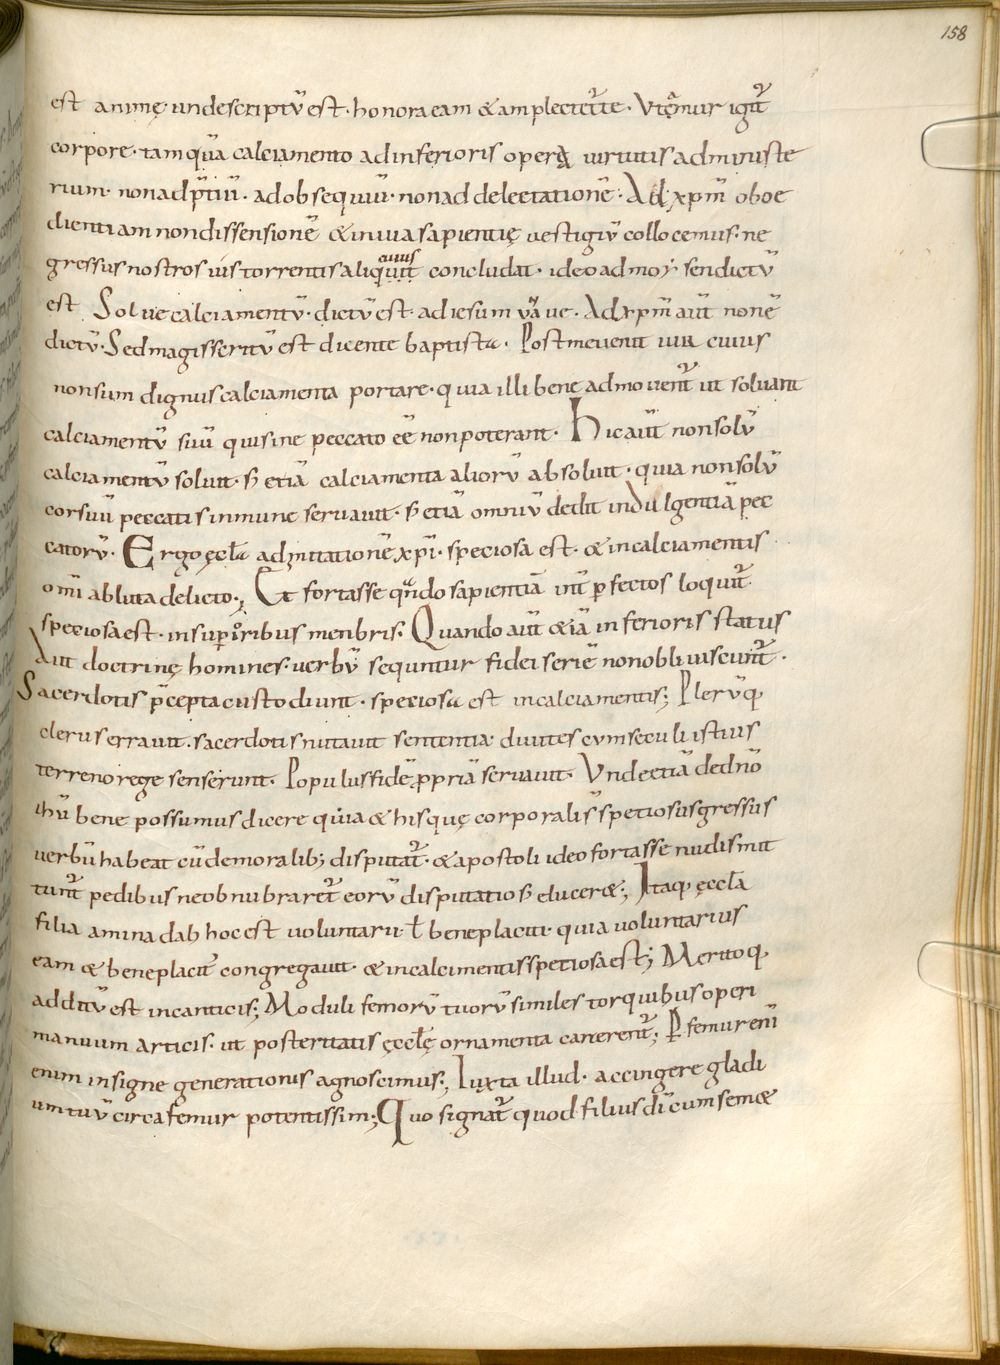 158
est animę· undescriptū est· honora eam & amplectet᷑ te· Utamur igit᷑
corpore· tamquā calciamento ad inferioris opera virtutis administe
rium· non ad p̄tiū· ad obsequiū· non ad delectationē· Ad xp̄m oboe
dientiam non dissensionē & in viva sapientię vestigiū collocemus· ne
gressus nostros torrentis aliquit cuius concludat· ideo ad moysen dictū
est Solve calciamentū· dictū est ad iesum nave· Ad xp̄m aūt non ē
dictū· Sed magis scriptū est dicente baptista· Post me venit vir cuius
non sum dignus calciamenta portare· quia illi bene admovent᷑ ut solvant
calciamentū suū qui sine peccato eē non poterant· Hic aūt non solū
calciamentū solvit· s; etiā calciamenta aliorū absolvit· quia non solū
cor suū peccatis inmune servavit· s; etiā omniū dedit indulgentiā pec
catorū· Ergo ęcła ad imitationē xp̄i· speciosa est· & in calciamentis
omī abluta delicto·, Et fortasse qn̄do sapientiā int̄ perfectos loquit᷑
speciosa est· in superioribus menbris· Quando aūt &iā inferioris status
Aut doctrinę homines· verbū sequntur fidei seriē non obliviscunt᷑·
Sacerdotis p̄cepta custodiunt· speciosa est in calciamentis; Plerūq;
clerus erravit· sacerdotis nutavit sententia divites cum seculi istius
terreno rege senserunt· Populus fidē propriā servavit· Unde etiā de dn̄o
ihū bene possumus dicere quia & hisquę corporalis̄ spetiosus gressus
verbū habeat cū de moralib; disputat᷑· & apostoli ideo fortasse nudis mit
tunt᷑ pedibus ne obnubraret᷑ eorū disputatio s; elucer&; Itaq; ęccła
filia aminadab hoc est voluntarii ł beneplaciti· quia voluntarius
eam & beneplacit᷑ congregavit· & in calcimentis spetiosa est; Meritoq;
additū est in canticis; Moduli femorū tuorū similes torquibus operi
manuum articis· ut posteritatis ęcclę ornamenta canerent᷑; P femur enī
enim insigne generationis agnoscimus·, Iuxta illud· accingere gladi
um tuū circa femur potentissim·; Quo signat᷑ quod filius dī cum sem&